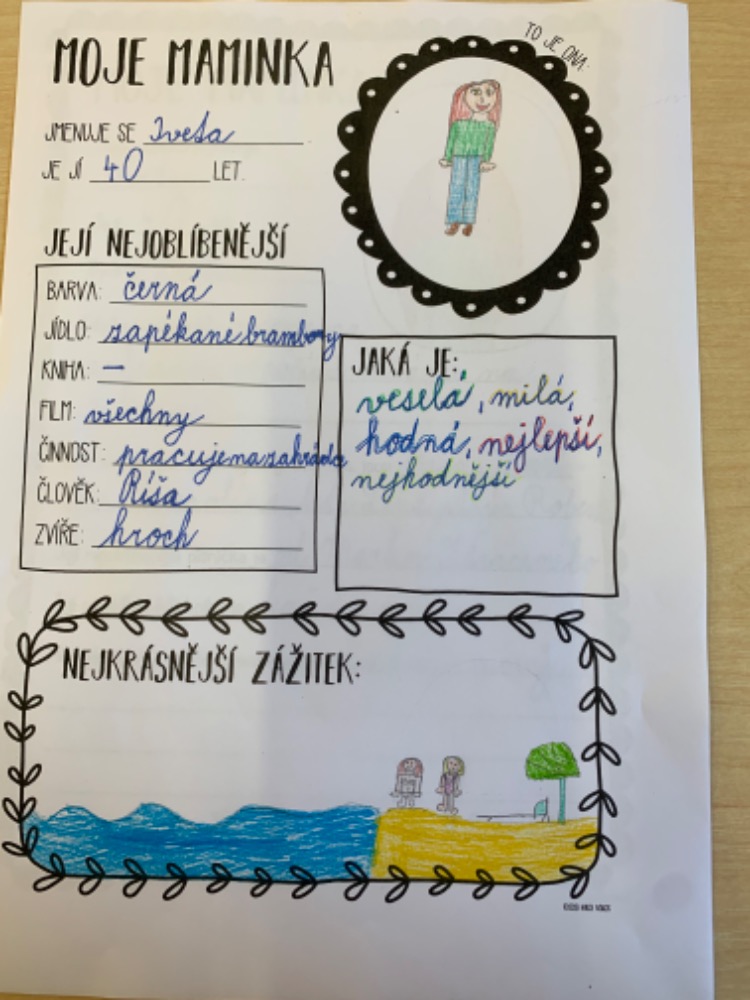 MOJE MAMINKA
TO JE ONA:
JMENUJE SE Iveta
JE JÍ 40 LET.
JEJÍ NEJOBLÍBENĚJŠÍ
BARVA: černá
JÍDLO: zapékané brambory
KNIHA: –
FILM: všechny
ČINNOST: pracujenazahrádce
ČLOVĚK: Ríša
ZVÍŘE: hroch
JAKÁ JE:
veselá, milá,
hodná, nejlepší,
nejhodnější
NEJKRÁSNĚJŠÍ ZÁŽITEK: